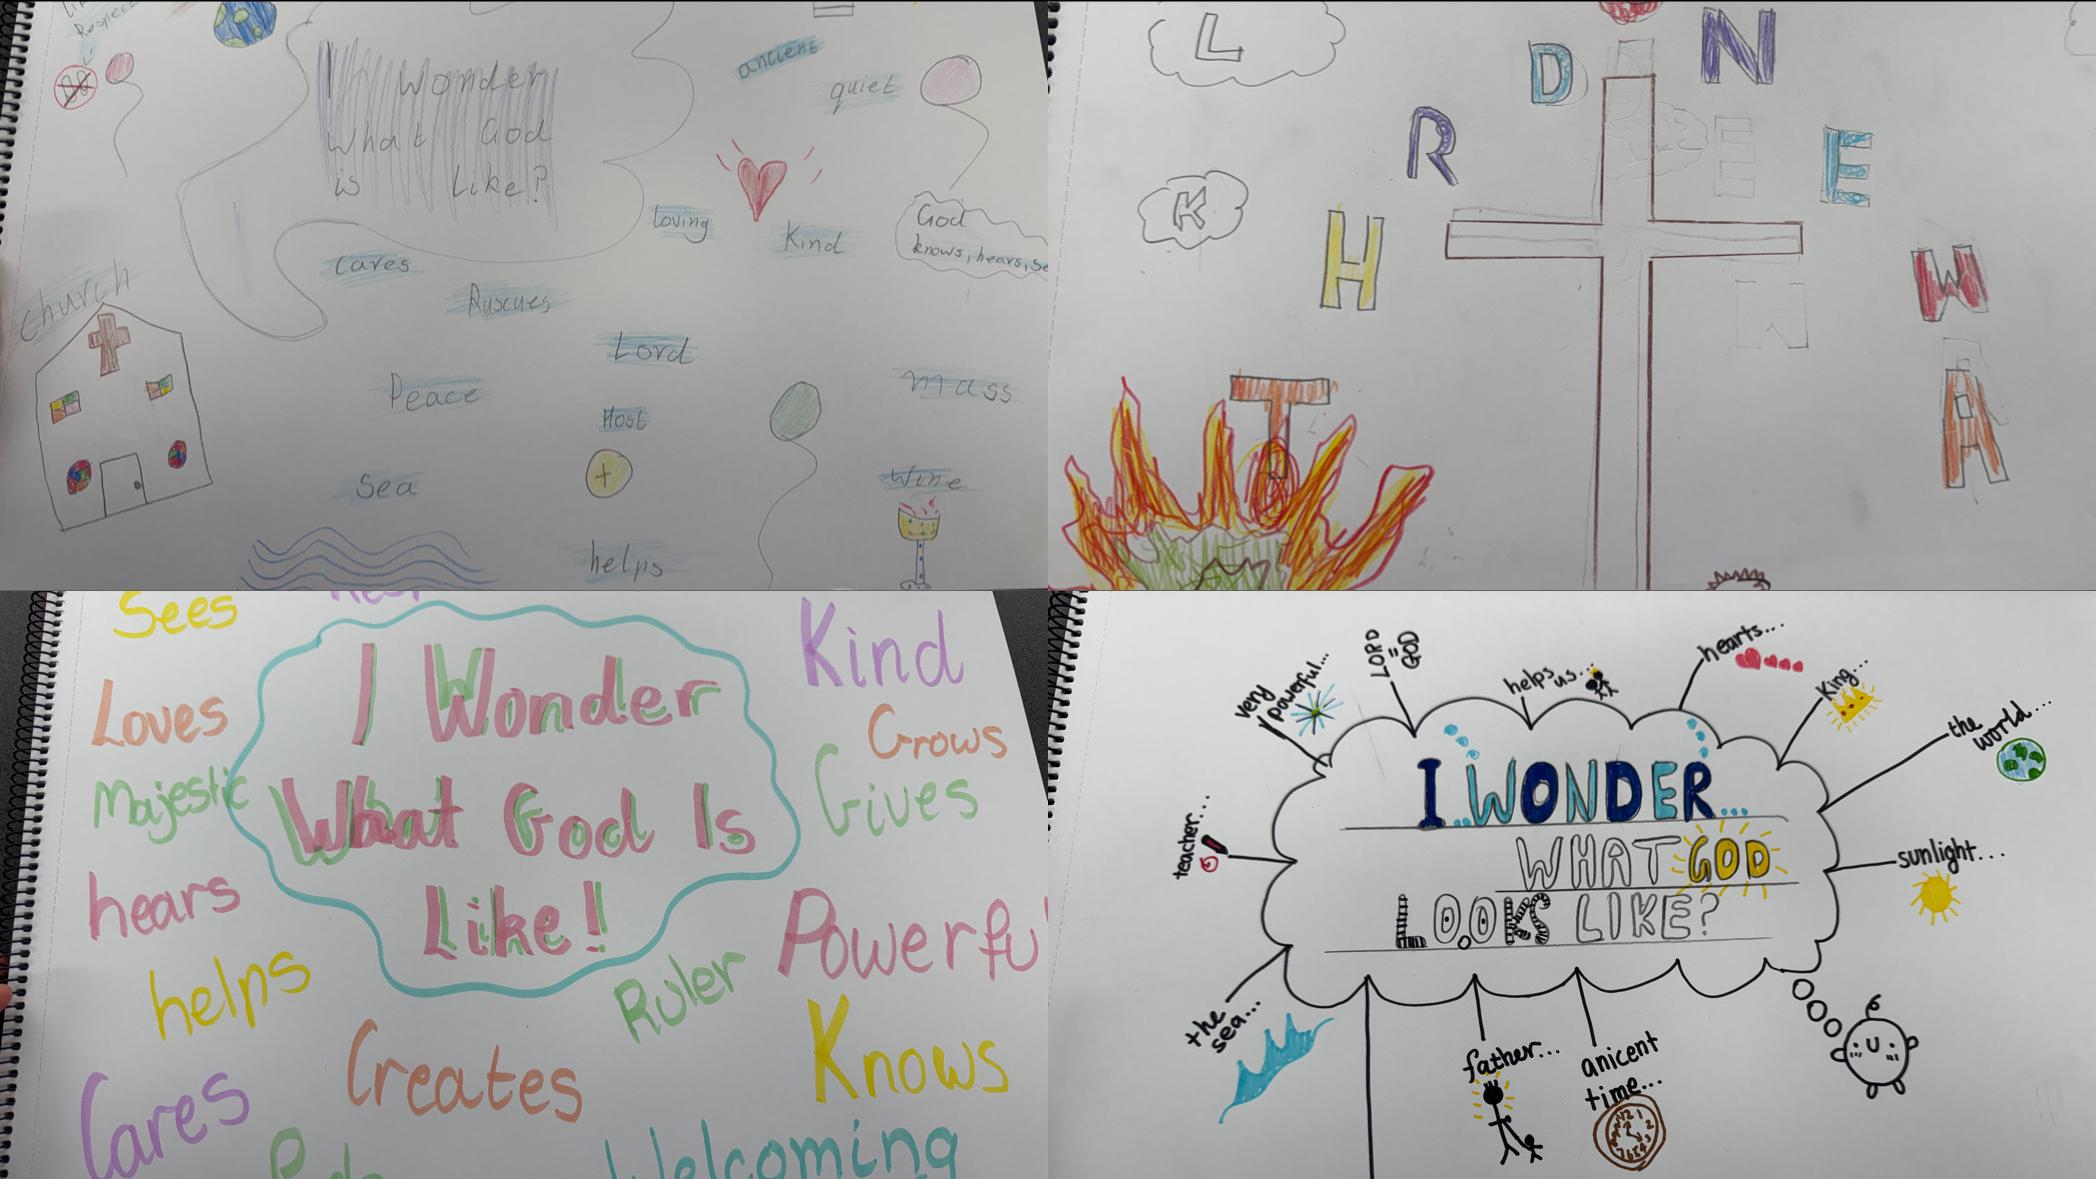 Respect
I Wonder
what God
is Like?
ancient
quiet
loving
Kind
God
knows, hears, se
Cares
Ruscues
Church
Lord
Peace
mass
Host
Sea
Wine
helps
L
D
N
R
E
E
K
H
W
W
T
A
Sees
Kind
I Wonder
What God Is
Like!
Loves
Grows
Majestic
Gives
hears
Powerfu
helps
Ruler
Creates
Knows
Cares
Welcoming
very
powerful...
LORD
=
GOD
helps us...
hearts...
King...
the
world...
I WONDER...
WHAT GOD
LOOKS LIKE?
teacher...
sunlight...
the
sea...
father...
anicent
time...
12 1
2
3
4
7 6 5